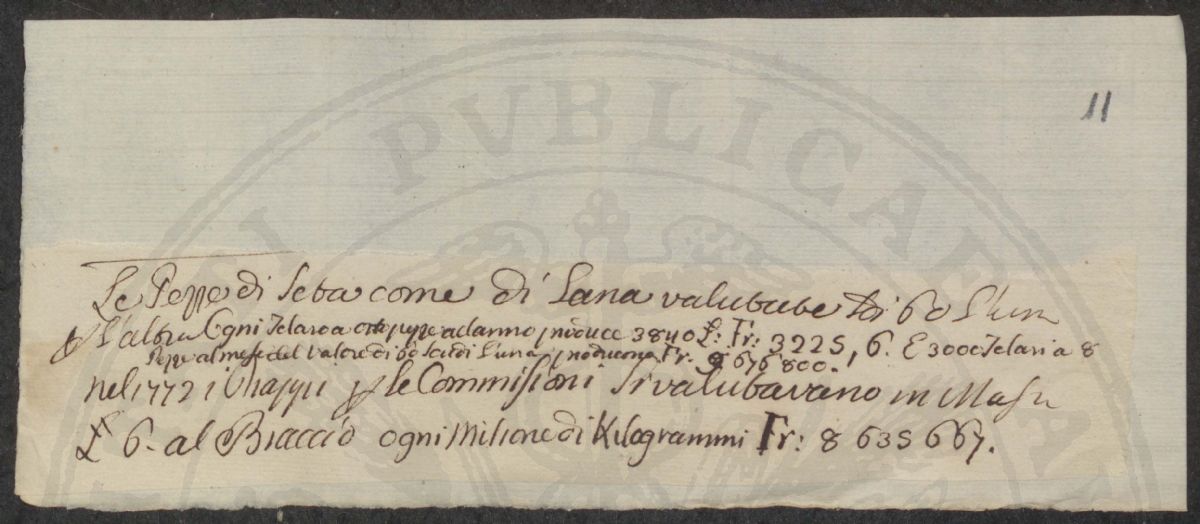 11
Le Pezze di Seta come di Lana valutate di 60 L'una
p L'altra Ogni Telaro a otto pezze ad anno produce 3840 L: Fr: 3225, 6. E 3000 Telari a 8
Pezze al mese del valore di 60 scudi L'una producono Fr: 8 676 800.
nel 1772 i p le Commissioni si valutavano in
£ 6. al Braccio ogni Milione di Kilogrammi Fr: 8 635 667.
PUBLICAE